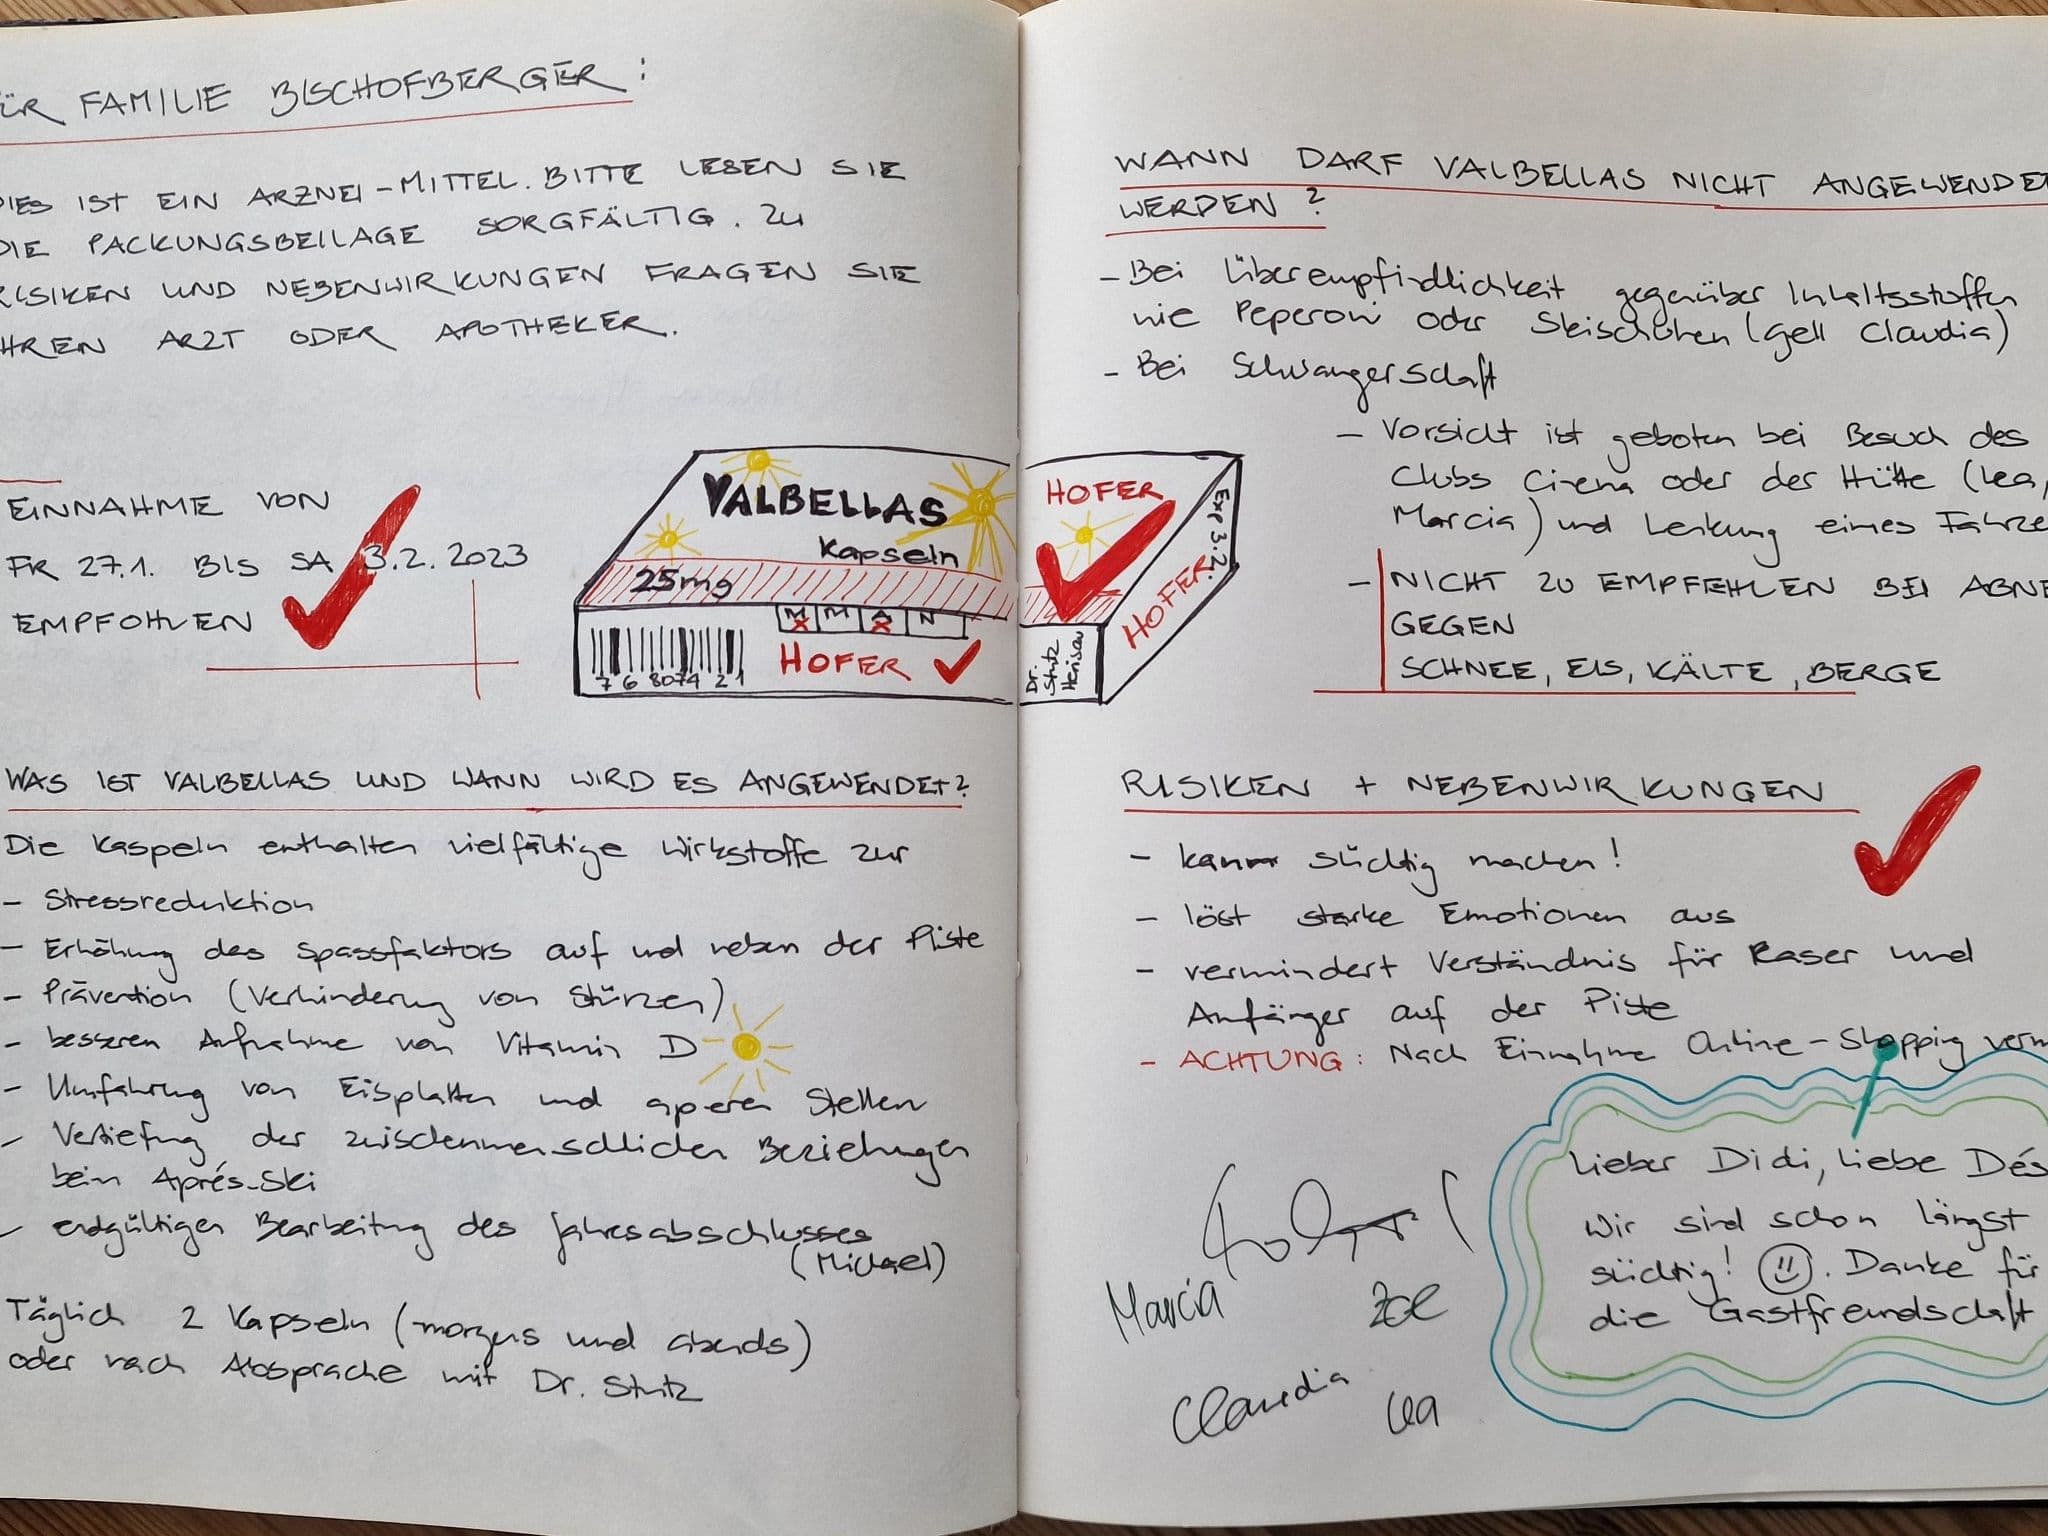 ÜR FAMILIE BISCHOFBERGER:
DIES IST EIN ARZNEI-MITTEL. BITTE LESEN SIE
DIE PACKUNGSBEILAGE SORGFÄLTIG. ZU
RISIKEN UND NEBENWIRKUNGEN FRAGEN SIE
HREN ARZT ODER APOTHEKER.
EINNAHME VON
FR 27.1. BIS SA 3.2.2023
EMPFOHLEN
VALBELLAS
Kapseln
25mg
M M A N
HOFER
7 68074 21
HOFER
Exp 3.2.
HOFER
Dr. Stutz Herisau
WAS IST VALBELLAS UND WANN WIRD ES ANGEWENDET?
Die Kaspeln enthalten vielfältige Wirkstoffe zur
- Stressreduktion
- Erhöhung des Spassfaktors auf und neben der Piste
- Prävention (Verhinderung von Stürzen)
- besseren Aufnahme von Vitamin D
- Umfahrung von Eisplatten und aperen Stellen
- Vertiefung der zwischenmenschlichen Beziehungen
beim Aprés-Ski
- endgültigen Bearbeitung des Jahresabschlusses
(Michael)
Täglich 2 Kapseln (morgens und abends)
oder nach Absprache mit Dr. Stutz
WANN DARF VALBELLAS NICHT ANGEWENDET
WERDEN?
- Bei Überempfindlichkeit gegenüber Inhaltsstoffen
wie Peperoni oder Skischuhen (gell Claudia)
- Bei Schwangerschaft
- Vorsicht ist geboten bei Besuch des
Clubs Cinema oder der Hütte (Lea,
Marcia) und Lenkung eines Fahrze
- NICHT ZU EMPFEHLEN BEI ABNE
GEGEN
SCHNEE, EIS, KÄLTE, BERGE
RISIKEN + NEBENWIRKUNGEN
- kann süchtig machen!
- löst starke Emotionen aus
- vermindert Verständnis für Raser und
Anfänger auf der Piste
- ACHTUNG: Nach Einnahme Online-Shopping verm
Marcia
Zoe
Claudia
Lea
Lieber Didi, liebe Dés
Wir sind schon längst
süchtig! Danke für
die Gastfreundschaft